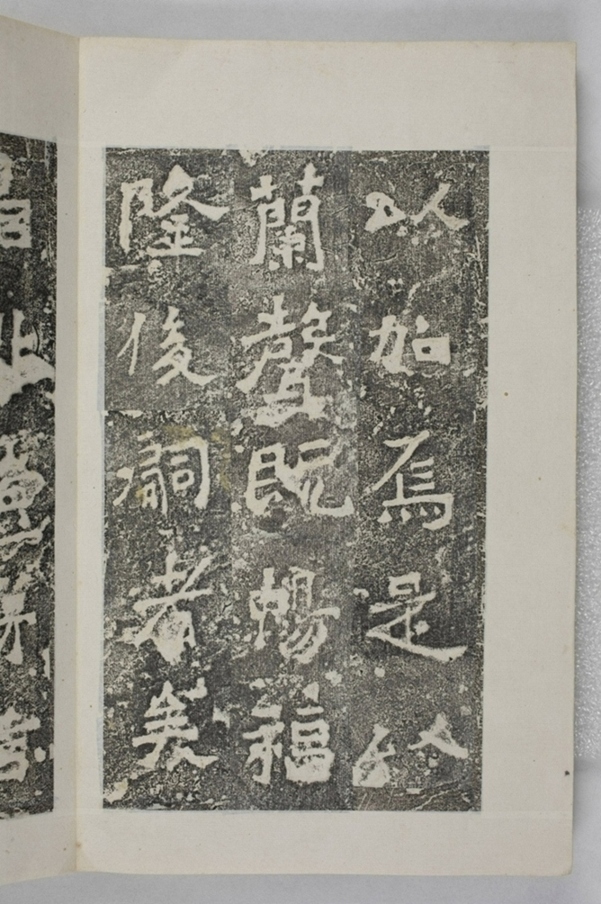 以加焉是以
蘭聲既暢福
隆後嗣者矣